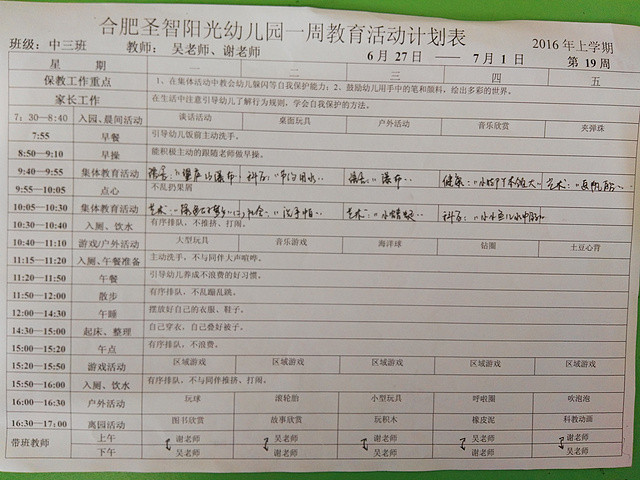 合肥圣智阳光幼儿园一周教育活动计划表
班级：中三班 教师：吴老师、谢老师 6月27日 —— 7月1日 2016年上学期
第19周
星期 一 二 三 四 五
保教工作重点 1、在集体活动中教会幼儿躲闪等自我保护能力；2、鼓励幼儿用手中的笔和颜料，绘出多彩的世界。
家长工作 在生活中注意引导幼儿了解行为规则，学会自我保护的方法。
7：30—8:40 入园、晨间活动 谈话活动 桌面玩具 户外活动 音乐欣赏 夹弹珠
7:55 早餐 引导幼儿饭前主动洗手。
8:50—9:10 早操 能积极主动的跟随老师做早操。
9:40—9:55 集体教育活动 语言： 科学： 语言： 健康： 艺术：
9:55—10:05 点心 不乱扔果屑
10:05—10:30 集体教育活动 艺术： 社会： 艺术： 科学：
10:30—10:40 入厕、饮水 有序排队、不推挤、打闹。
10:40—11:10 游戏/户外活动 大型玩具 音乐游戏 海洋球 钻圈 土豆心背
11:15—11:20 入厕、午餐准备 主动洗手，不与同伴大声喧哗。
11:20—11:50 午餐 引导幼儿养成不浪费的好习惯。
11:50—12:00 散步 有序排队，不乱蹦乱跳。
12:00—14:30 午睡 摆放好自己的衣服、鞋子。
14:30—15:00 起床、整理 自己穿衣，自己叠好被子。
15:00—15:20 午点 有序排队，不浪费。
15:20—15:50 游戏活动 区域游戏 区域游戏 区域游戏 区域游戏 区域游戏
15:50—16:00 入厕、饮水 有序排队，不与同伴推挤、打闹。
16:00—16:30 户外活动 玩球 滚轮胎 小型玩具 呼啦圈 吹泡泡
16:30—17:00 离园活动 图书欣赏 故事欣赏 玩积木 橡皮泥 科教动画
带班教师 上午 谢老师 吴老师 谢老师 吴老师 谢老师
下午 吴老师 谢老师 吴老师 谢老师 吴老师